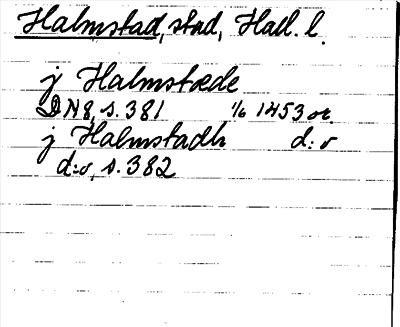 Halmstad, stad, Hall. l.
j Halmstæde
DN 8, s. 381 1/6 1453 or.
j Halmstadh d:o
d:o, s. 382